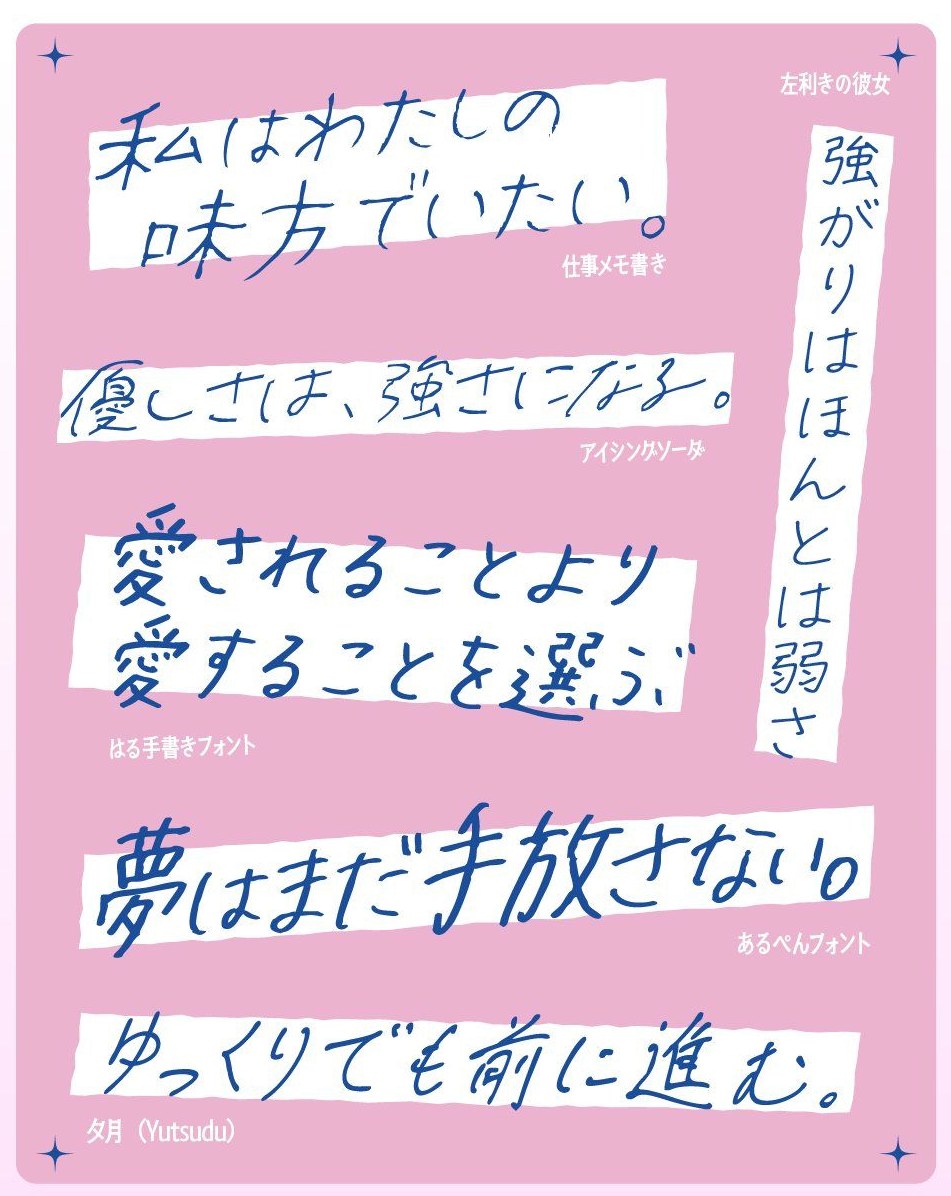 左利きの彼女
強がりはほんとは弱さ
私はわたしの
味方でいたい。
仕事メモ書き
優しさは、強さになる。
アイシングソーダ
愛されることより
愛することを選ぶ
はる手書きフォント
夢はまだ手放さない。
あるぺんフォント
ゆっくりでも前に進む。
夕月（Yutsudu）